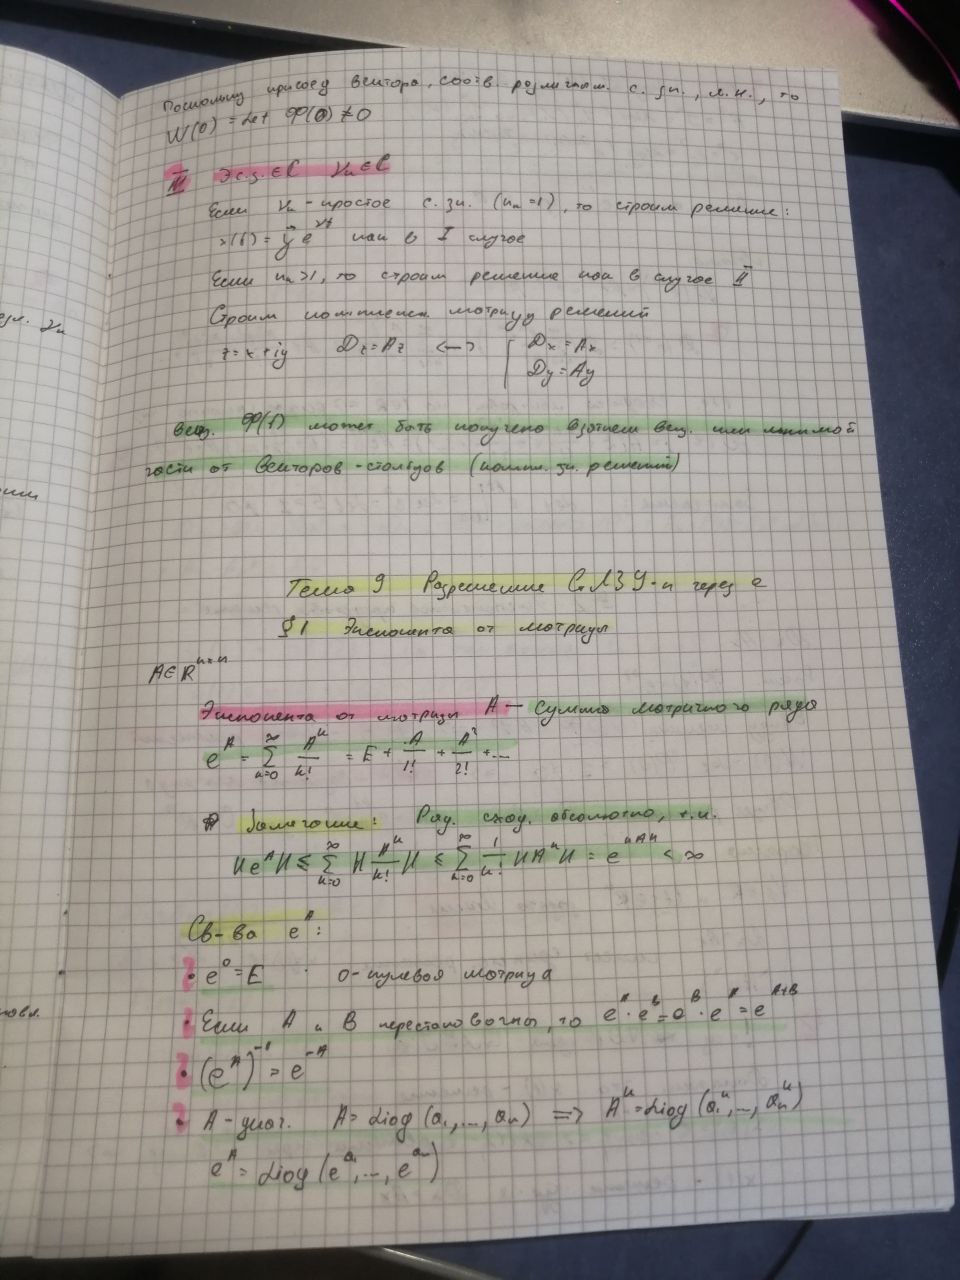 Поскольку присоед вектора, соотв. различным с. зн., л.н., то
W(0) = det Φ(0) ≠ 0
III ∃ с.з. ∈ C γₖ ∈ C
Если γₖ - простое с. зн. (nₖ = 1), то строим решение:
x(t) = y⃗ e^γt как в I случае
Если nₖ > 1, то строим решение как в случае II
Строим комплексн. матрицу решений
z = x + iy Dz = Az <—> { Dx = Ax
Dy = Ay
вещ. Φ(t) может быть получено взятием вещ. или мнимой
части от векторов-столбцов (компл. зн. решений)
Тема 9 Разрешение СЛЗУ-и через e
§1 Экспонента от матрицы
A ∈ R^n×n
Экспонента от матрицы A — сумма матричного ряда
e^A = ∑_{k=0}^∞ A^k/k! = E + A/1! + A²/2! + ...
Замечание: Ряд. сход. абсолютно, т.к.
‖e^A‖ ≤ ∑_{k=0}^∞ ‖A^k/k!‖ ≤ ∑_{k=0}^∞ 1/k! ‖A^k‖ = e^‖A‖ < ∞
Св-ва e^A:
• e^0 = E 0 - нулевая матрица
• Если A и B перестановочны, то e^A · e^B = e^B · e^A = e^A+B
• (e^A)^-1 = e^-A
• A - диаг. A = diag (a₁, ..., aₙ) => A^k = diag (a₁^k, ..., aₙ^k)
e^A = diag (e^a₁, ..., e^aₙ)